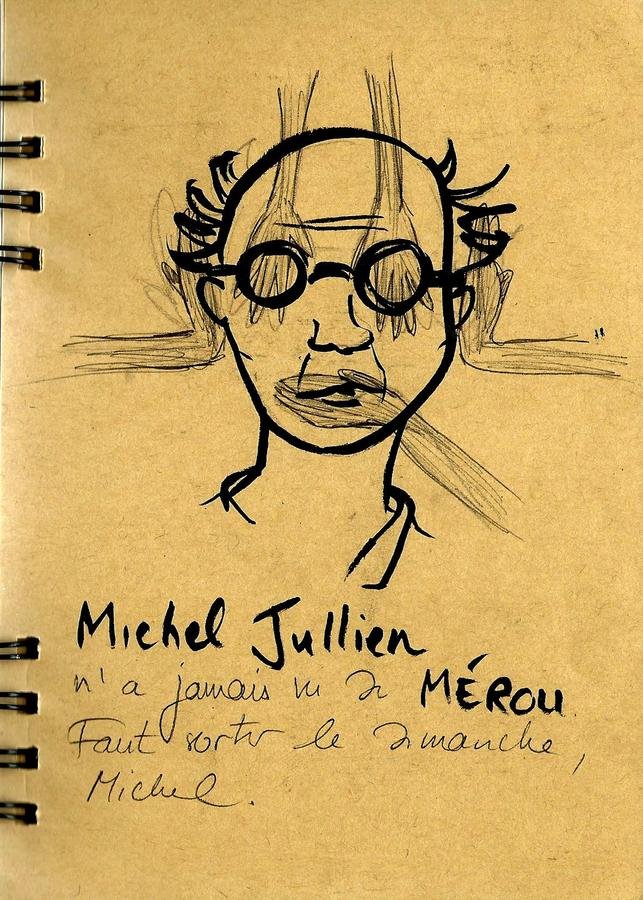 Michel Jullien
n'a jamais vu de MÉROU.
Faut sortir le dimanche,
Michel.